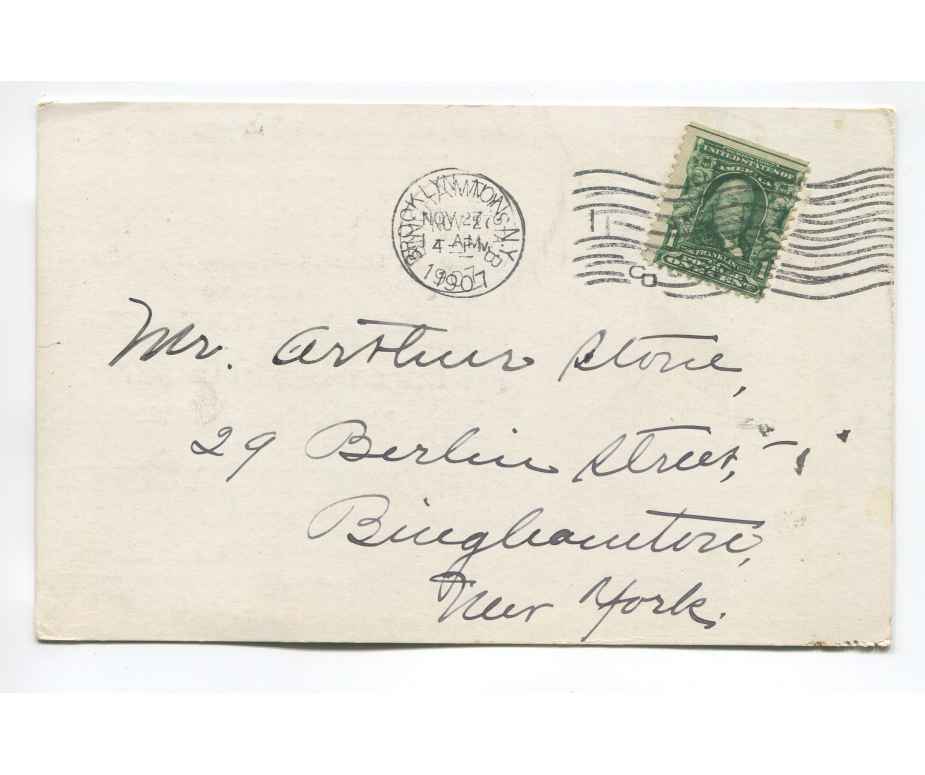 BROOKLYN N.Y.
NOV 27
4 - AM
1907
UNITED STATES OF
AMERICA
FRANKLIN
1 ONE CENT 1
Mr. Arthur Stone,
29 Berlin Street,
Binghamton,
New York.